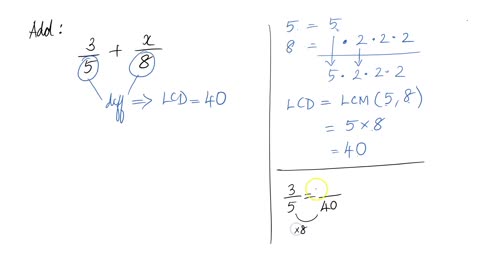 Add:
3/5 + x/8
diff ⇒ LCD = 40
5 = 5
8 = 1 · 2 · 2 · 2
5 · 2 · 2 · 2
LCD = LCM (5, 8)
= 5 × 8
= 40
3/5 = /40
×8